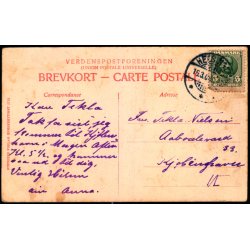 VERDENSPOSTFORENINGEN
(UNION POSTALE UNIVERSELLE)
BREVKORT – CARTE POSTALE
Korrespondance
Adresse
Kære Tekla
Tak for sidst jeg
kommer til Kjøben
havn Morgen Aften
Kl. 5 ½ og kommer
saa ud til dig.
Venlig Hilsen
din Anna.
Frk. Tekla Nielsen
Aaboulevard
33
Kjøbenhavn